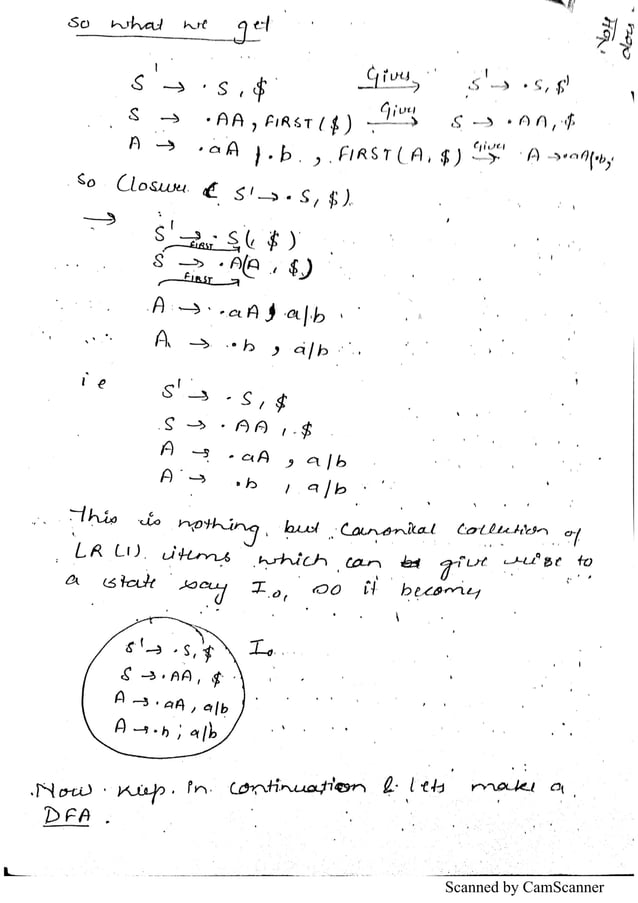 so what we get
S' → · S, $ Gives S' → · S, $
S → · AA, FIRST($) Gives S → · AA, $
A → · aA | · b , FIRST(A, $) Gives A → · aA|·b,
so Closure ( S' → · S, $)
→
S' → · S(, $)
FIRST
S → · A(A, $)
FIRST
A → · aA, a/b
A → · b , a/b
ie
S' → · S, $
S → · AA, $
A → · aA , a/b
A → · b , a/b
∴ This is nothing but Canonical Collection of
LR(1) items which can give rise to
a state say I₀, so it becomes
S' → · S, $ I₀
S → · AA, $
A → · aA, a/b
A → · b ; a/b
Now keep in continuation & lets make a
DFA.
Scanned by CamScanner